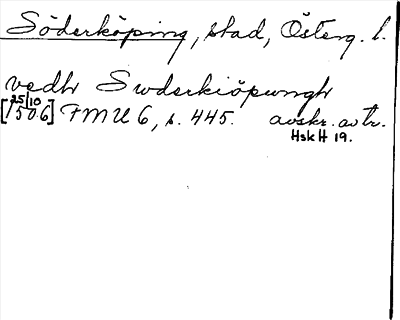 Söderköping, stad, Österg. l.
vedh Swderkiöpungh
25/10
[1506] FMU 6, s. 445. avskr. av tr.
Hsk H 19.